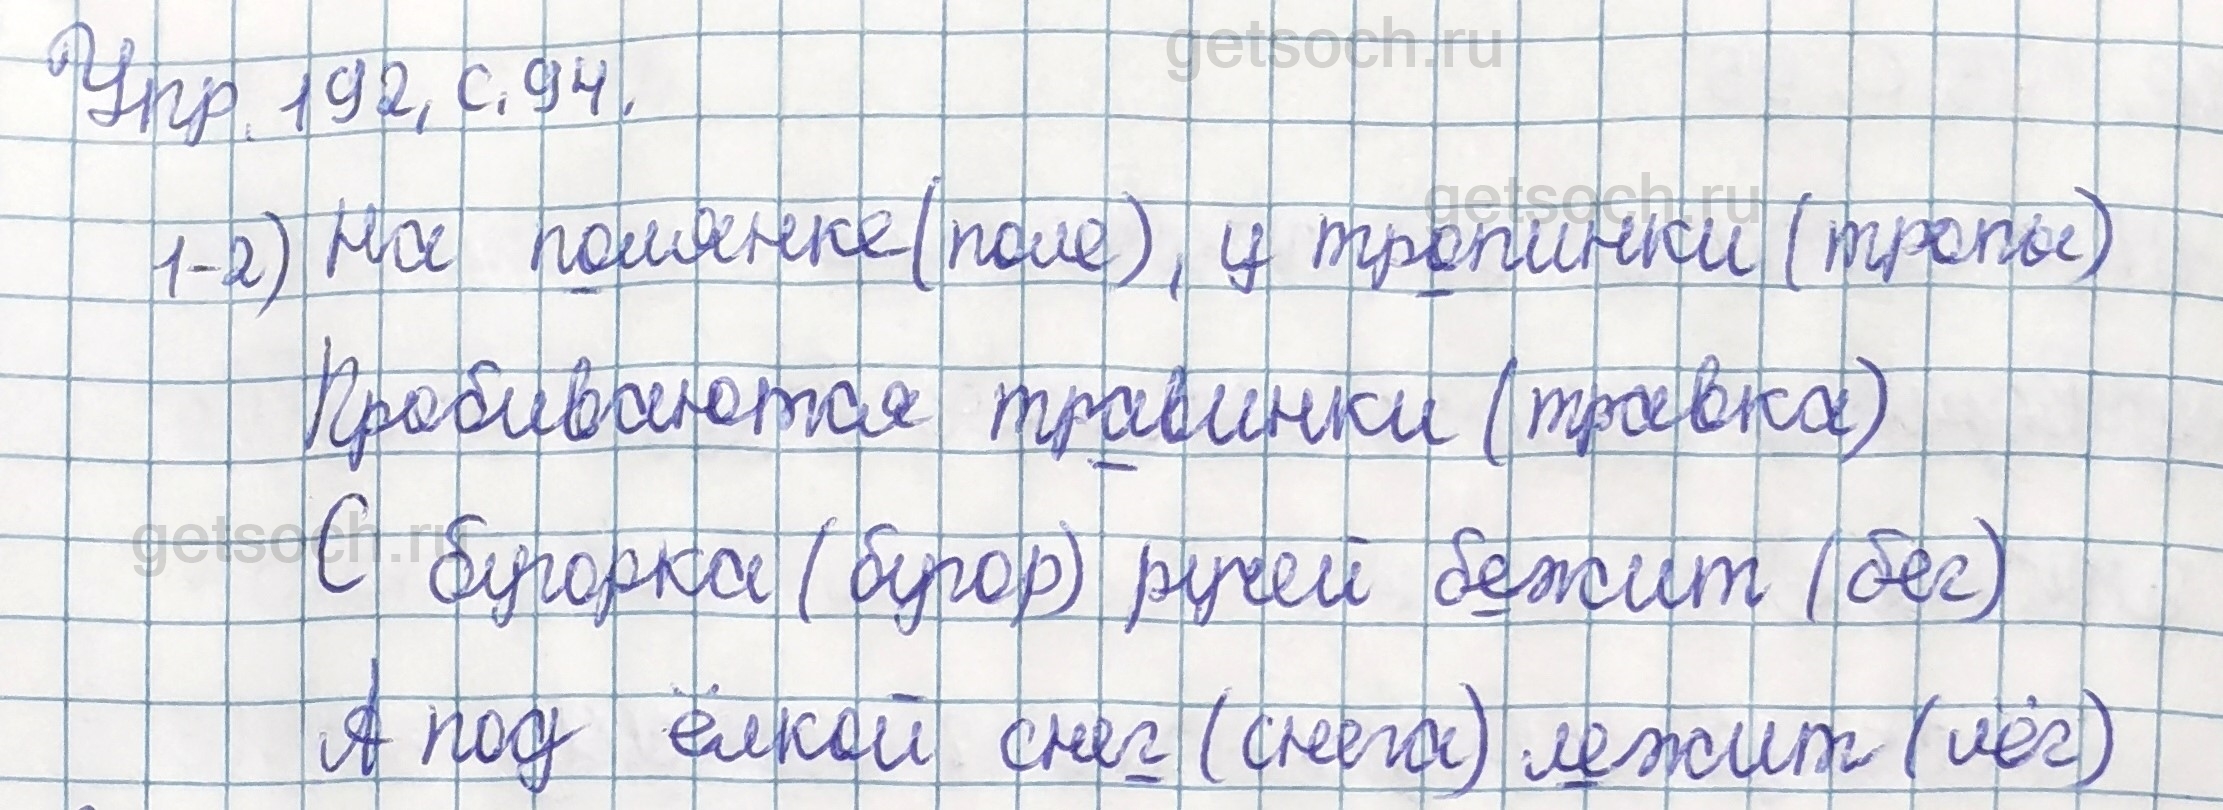 getsoch.ru
Упр. 192, с. 94.
getsoch.ru
1-2) На полянке (поле), у тропинки (тропы)
Пробиваются травинки (травка)
getsoch.ru
С бугорка (бугор) ручей бежит (бег)
А под ёлкой снег (снега) лежит (лёг)